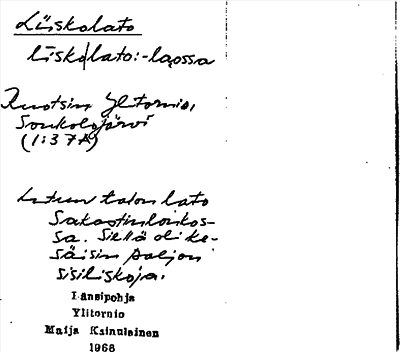 Liiskolato
līsko|lato: -laossa
Ruotsin Ylitornio,
Soukolojärvi
(1:37A)
talon lato
Sakastinloukos-
sa. Siellä oli ke-
säisin paljon
sisiliskoja.
Länsipohja
Ylitornio
Maija Kainulainen
1966